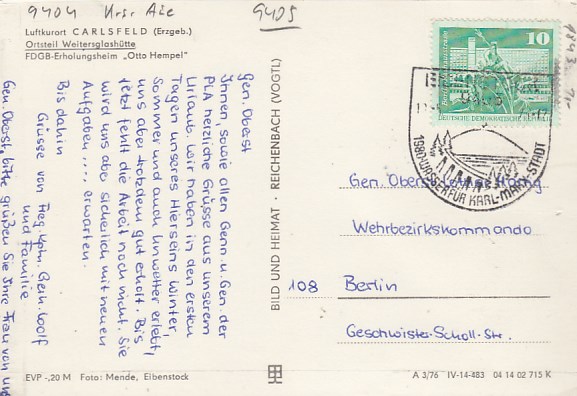 9404 Krs. Aue
9405
Luftkurort CARLSFELD (Erzgeb.)
Ortsteil Weitersglashütte
FDGB-Erholungsheim „Otto Hempel"
Gen. Oberst
Ihnen, sowie allen Genn. u. Gen. der
PLA herzliche Grüsse aus unserem
Urlaub. Wir haben in den ersten
Tagen unseres Hierseins Winter,
Sommer und auch Unwetter erlebt,
uns aber trotzdem gut erholt. Bis
jetzt fehlt die Arbeit noch nicht. Sie
wird uns aber sicherlich mit neuen
Aufgaben .... erwarten.
Bis dahin
Grüsse von Freg. Kptn. Gerh. Woolf
und Familie
Gen. Oberst, bitte grüßen Sie Ihre Frau von uns
BILD UND HEIMAT · REICHENBACH (VOGTL)
10
DEUTSCHE DEMOKRATISCHE
1987 WASSER FÜR KARL-MARX-STADT
Gen. Oberst
Wehrbezirkskommando
108 Berlin
Geschwister-Scholl-Str.
EVP -,20 M Foto: Mende, Eibenstock
A 3/76 IV-14-483 04 14 02 715 K